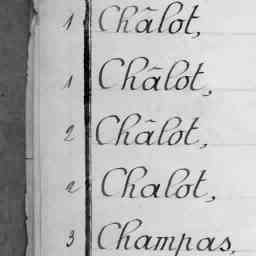 1 Châlot,
1 Châlot,
2 Châlot,
2 Chalot,
3 Champas,